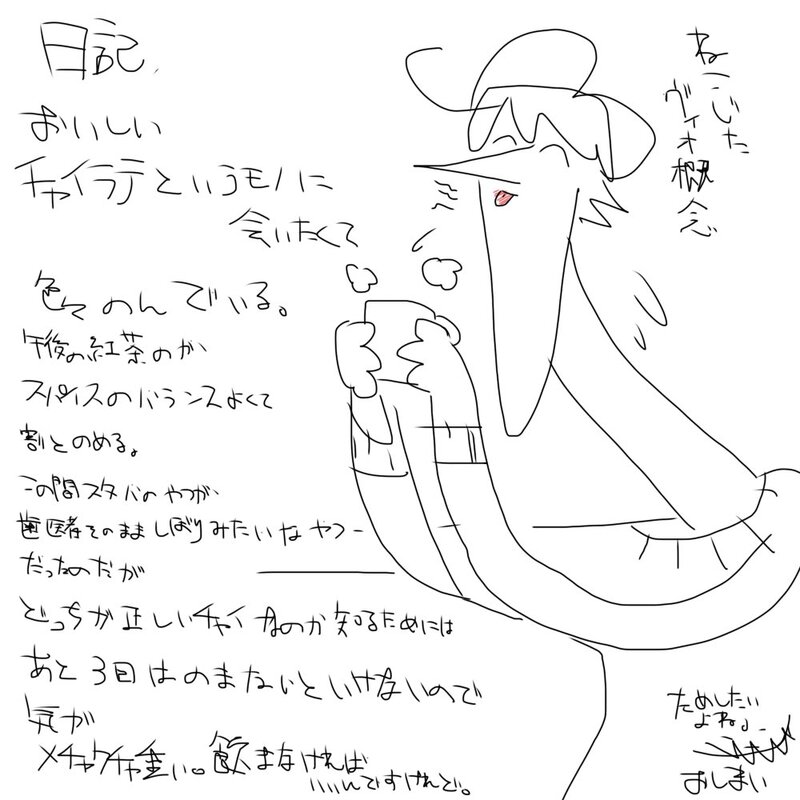 日記
おいしい
チャイラテというモノに
会いたくて
色々のんでいる。
午後の紅茶のが
スパイスのバランスよくて
割とのめる。
この間スタバのやつが
歯医者そのまましぼりみたいなヤツー
だったのだが
どっちが正しいチャイなのか知るためには
あと3回はのまないといけないので
気が
メチャクチャ重い。飲まなければ
いいんですけれど。
ねこじた
ヴィオ概念
ためしたい
よね。
おしまい